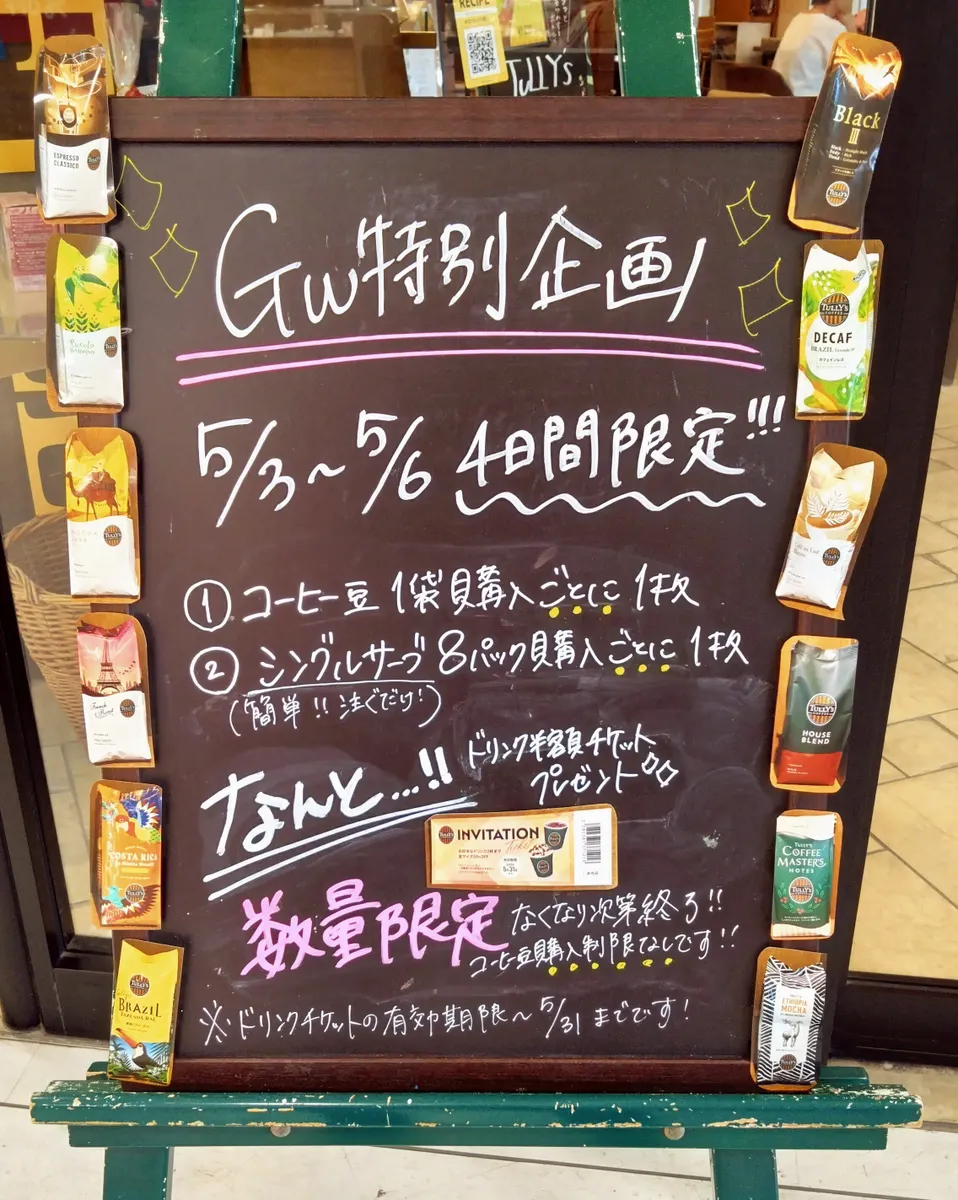 RECIPE
TULLY's
ESPRESSO
CLASSICO
Black
III
GW特別企画
TULLY'S
COFFEE
DECAF
BRAZIL
カフェインレス
5/3～5/6 4日間限定!!!
① コーヒー豆 1袋購入ごとに 1枚
② シングルサーブ 8パック購入ごとに 1枚
(簡単!! 注ぐだけ!)
French Roast
TULLY'S
COFFEE
HOUSE
BLEND
なんと...!!
ドリンク半額チケット
プレゼント
COSTA RICA
TULLY'S
INVITATION
ticket
5/31
TULLY'S
COFFEE
MASTER'S
NOTES
TULLY'S
数量限定
なくなり次第終了!!
コーヒー豆購入制限なしです!!
BRAZIL
ETHIOPIA
MOCHA
※ドリンクチケットの有効期限～5/31 までです!